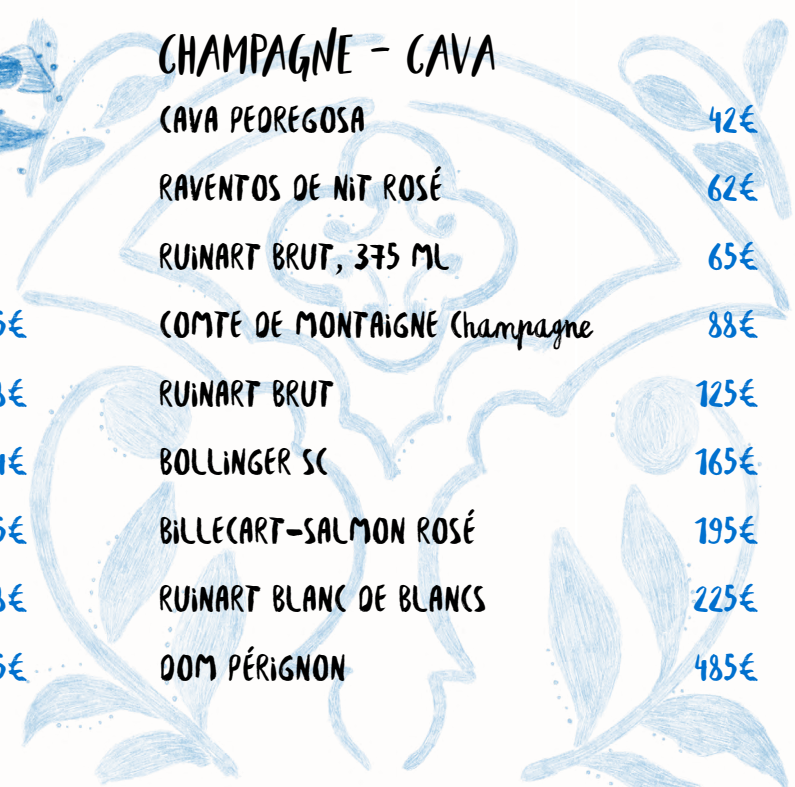 CHAMPAGNE - CAVA
CAVA PEDREGOSA 42€
RAVENTOS DE NiT ROSÉ 62€
RUiNART BRUT, 375 ML 65€
COMTE DE MONTAiGNE Champagne 88€
RUiNART BRUT 125€
BOLLiNGER SC 165€
BiLLECART-SALMON ROSÉ 195€
RUiNART BLANC DE BLANCS 225€
DOM PÉRiGNON 485€